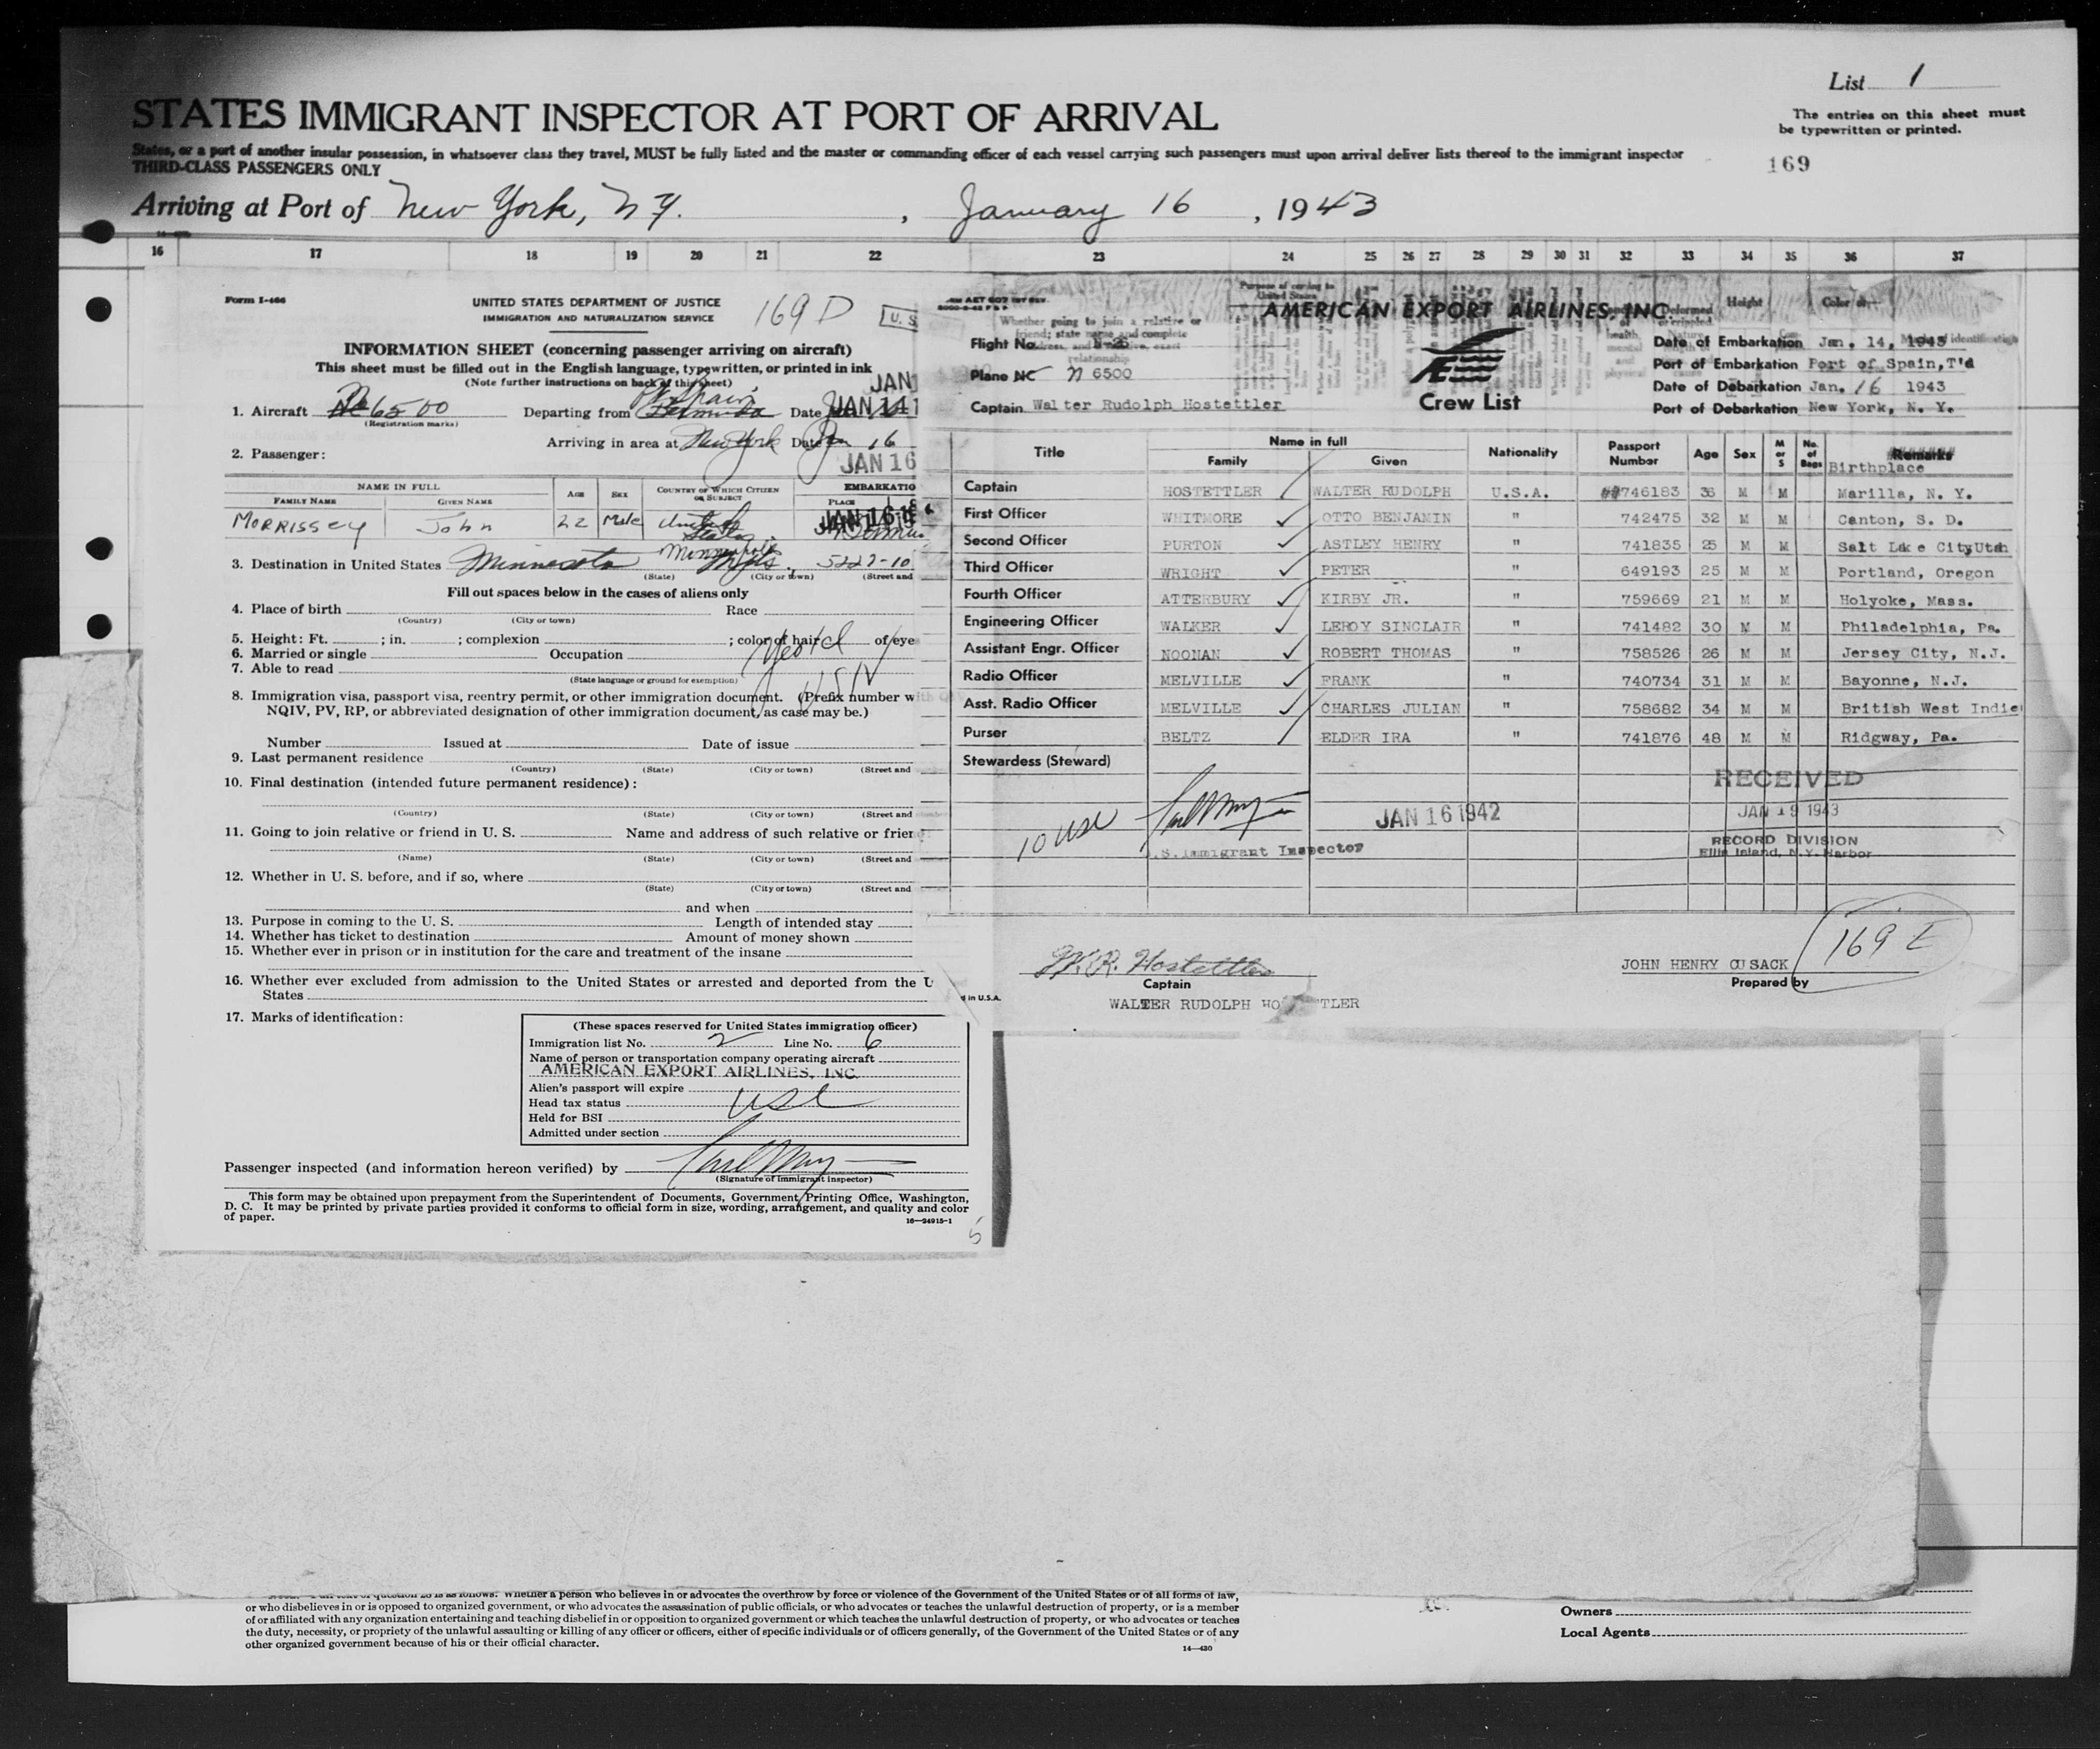 List 1
STATES IMMIGRANT INSPECTOR AT PORT OF ARRIVAL
The entries on this sheet must
be typewritten or printed.
States, or a port of another insular possession, in whatsoever class they travel, MUST be fully listed and the master or commanding officer of each vessel carrying such passengers must upon arrival deliver lists thereof to the immigrant inspector
THIRD-CLASS PASSENGERS ONLY
169
Arriving at Port of New York, N.Y. , January 16 , 1943
16 17 18 19 20 21 22 23 24 25 26 27 28 29 30 31 32 33 34 35 36 37
Form I-466
UNITED STATES DEPARTMENT OF JUSTICE
IMMIGRATION AND NATURALIZATION SERVICE
169 D
U. S
INFORMATION SHEET (concerning passenger arriving on aircraft)
This sheet must be filled out in the English language, typewritten, or printed in ink
(Note further instructions on back of this sheet)
JAN
1. Aircraft 6500 Departing from Bermuda Date JAN 14 1
(Registration marks)
Arriving in area at New York Date Jan 16
2. Passenger:
JAN 16
NAME IN FULL AGE SEX COUNTRY OF WHICH CITIZEN OR SUBJECT EMBARKATIO
FAMILY NAME GIVEN NAME PLACE
MORRISSEY John 22 Male United States
3. Destination in United States Minnesota Minneapolis Mpls. 5227-10
(State) (City or town) (Street and
Fill out spaces below in the cases of aliens only
4. Place of birth Race
(Country) (City or town)
5. Height: Ft. ; in. ; complexion ; color of hair of eye
6. Married or single Occupation
7. Able to read
(State language or ground for exemption)
8. Immigration visa, passport visa, reentry permit, or other immigration document. (Prefix number w
NQIV, PV, RP, or abbreviated designation of other immigration document, as case may be.)
Number Issued at Date of issue
9. Last permanent residence
(Country) (State) (City or town) (Street and
10. Final destination (intended future permanent residence):
(Country) (State) (City or town) (Street and
11. Going to join relative or friend in U. S. Name and address of such relative or frien
(Name) (State) (City or town) (Street and
12. Whether in U. S. before, and if so, where
(State) (City or town) (Street and
and when
13. Purpose in coming to the U. S. Length of intended stay
14. Whether has ticket to destination Amount of money shown
15. Whether ever in prison or in institution for the care and treatment of the insane
16. Whether ever excluded from admission to the United States or arrested and deported from the U
States
17. Marks of identification:
(These spaces reserved for United States immigration officer)
Immigration list No. 2 Line No. 6
Name of person or transportation company operating aircraft
AMERICAN EXPORT AIRLINES, INC.
Alien's passport will expire
Head tax status USC
Held for BSI
Admitted under section
Passenger inspected (and information hereon verified) by
(Signature of immigrant inspector)
This form may be obtained upon prepayment from the Superintendent of Documents, Government Printing Office, Washington,
D. C. It may be printed by private parties provided it conforms to official form in size, wording, arrangement, and quality and color
of paper.
16—24915-1
5
AMERICAN EXPORT AIRLINES, INC.
Whether going to join a relative or
friend; state name and complete
relationship
Purpose of coming to
United States
Height
Flight No. N-25
Plane NC N 6500
Captain Walter Rudolph Hostettler
Crew List
Date of Embarkation Jan. 14, 1943
Port of Embarkation Port of Spain,T'd
Date of Debarkation Jan. 16 1943
Port of Debarkation New York, N. Y.
Title Name in full Nationality Passport Number Age Sex M or S No. of Bags Remarks
Family Given Birthplace
Captain HOSTETTLER WALTER RUDOLPH U.S.A. 746183 36 M M Marilla, N. Y.
First Officer WHITMORE OTTO BENJAMIN " 742475 32 M M Canton, S. D.
Second Officer PURTON ASTLEY HENRY " 741835 25 M M Salt Lake City,Utah
Third Officer WRIGHT PETER " 649193 25 M M Portland, Oregon
Fourth Officer ATTERBURY KIRBY JR. " 759669 21 M M Holyoke, Mass.
Engineering Officer WALKER LEROY SINCLAIR " 741482 30 M M Philadelphia, Pa.
Assistant Engr. Officer NOONAN ROBERT THOMAS " 758526 26 M M Jersey City, N.J.
Radio Officer MELVILLE FRANK " 740734 31 M M Bayonne, N.J.
Asst. Radio Officer MELVILLE CHARLES JULIAN " 758682 34 M M British West Indie
Purser BELTZ ELDER IRA " 741876 48 M M Ridgway, Pa.
Stewardess (Steward)
RECEIVED
JAN 19 1943
RECORD DIVISION
Ellis Island, N.Y. Harbor
10 USC
JAN 16 1942
.S. Immigrant Inspector
W. R. Hostettler
Captain
WALTER RUDOLPH HO TLER
JOHN HENRY CUSACK
Prepared by
169 E
d in U.S.A.
or who disbelieves in or is opposed to organized government, or who advocates the assassination of public officials, or who advocates or teaches the unlawful destruction of property, or is a member
of or affiliated with any organization entertaining and teaching disbelief in or opposition to organized government or which teaches the unlawful destruction of property, or who advocates or teaches
the duty, necessity, or propriety of the unlawful assaulting or killing of any officer or officers, either of specific individuals or of officers generally, of the Government of the United States or of any
other organized government because of his or their official character.
14—430
Owners
Local Agents